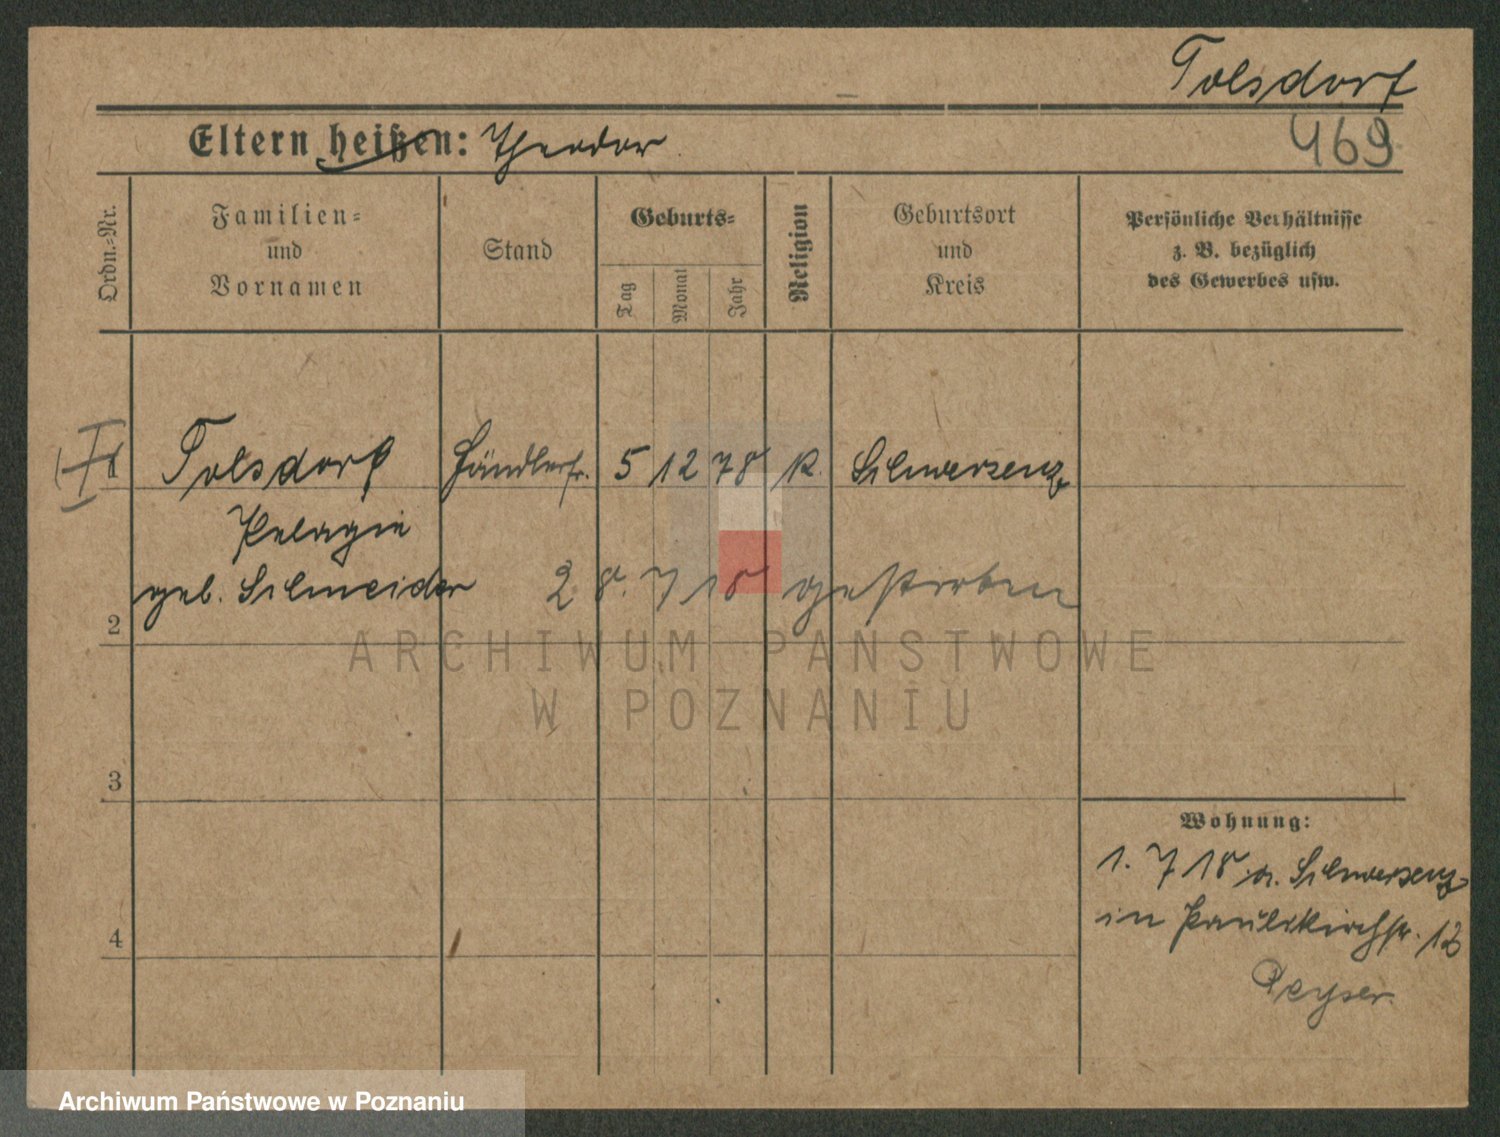 Tolsdorf
469
Eltern heißen: Theodor
Ordn.-Nr.
Familien-
und
Vornamen
Stand
Geburts-
Tag
Monat
Jahr
Religion
Geburtsort
und
Kreis
Persönliche Verhältnisse
z. B. bezüglich
des Gewerbes usw.
1 Tolsdorf Händlerfr. 5 12 78 K. Schwersenz
Pelagie
geb. Schneider 28. 7 18 gestorben
2
3
4
Wohnung:
1. 7 18 a. Schwersenz
in Paulikirchstr. 12
Peyser.
ARCHIWUM PAŃSTWOWE
W POZNANIU
Archiwum Państwowe w Poznaniu